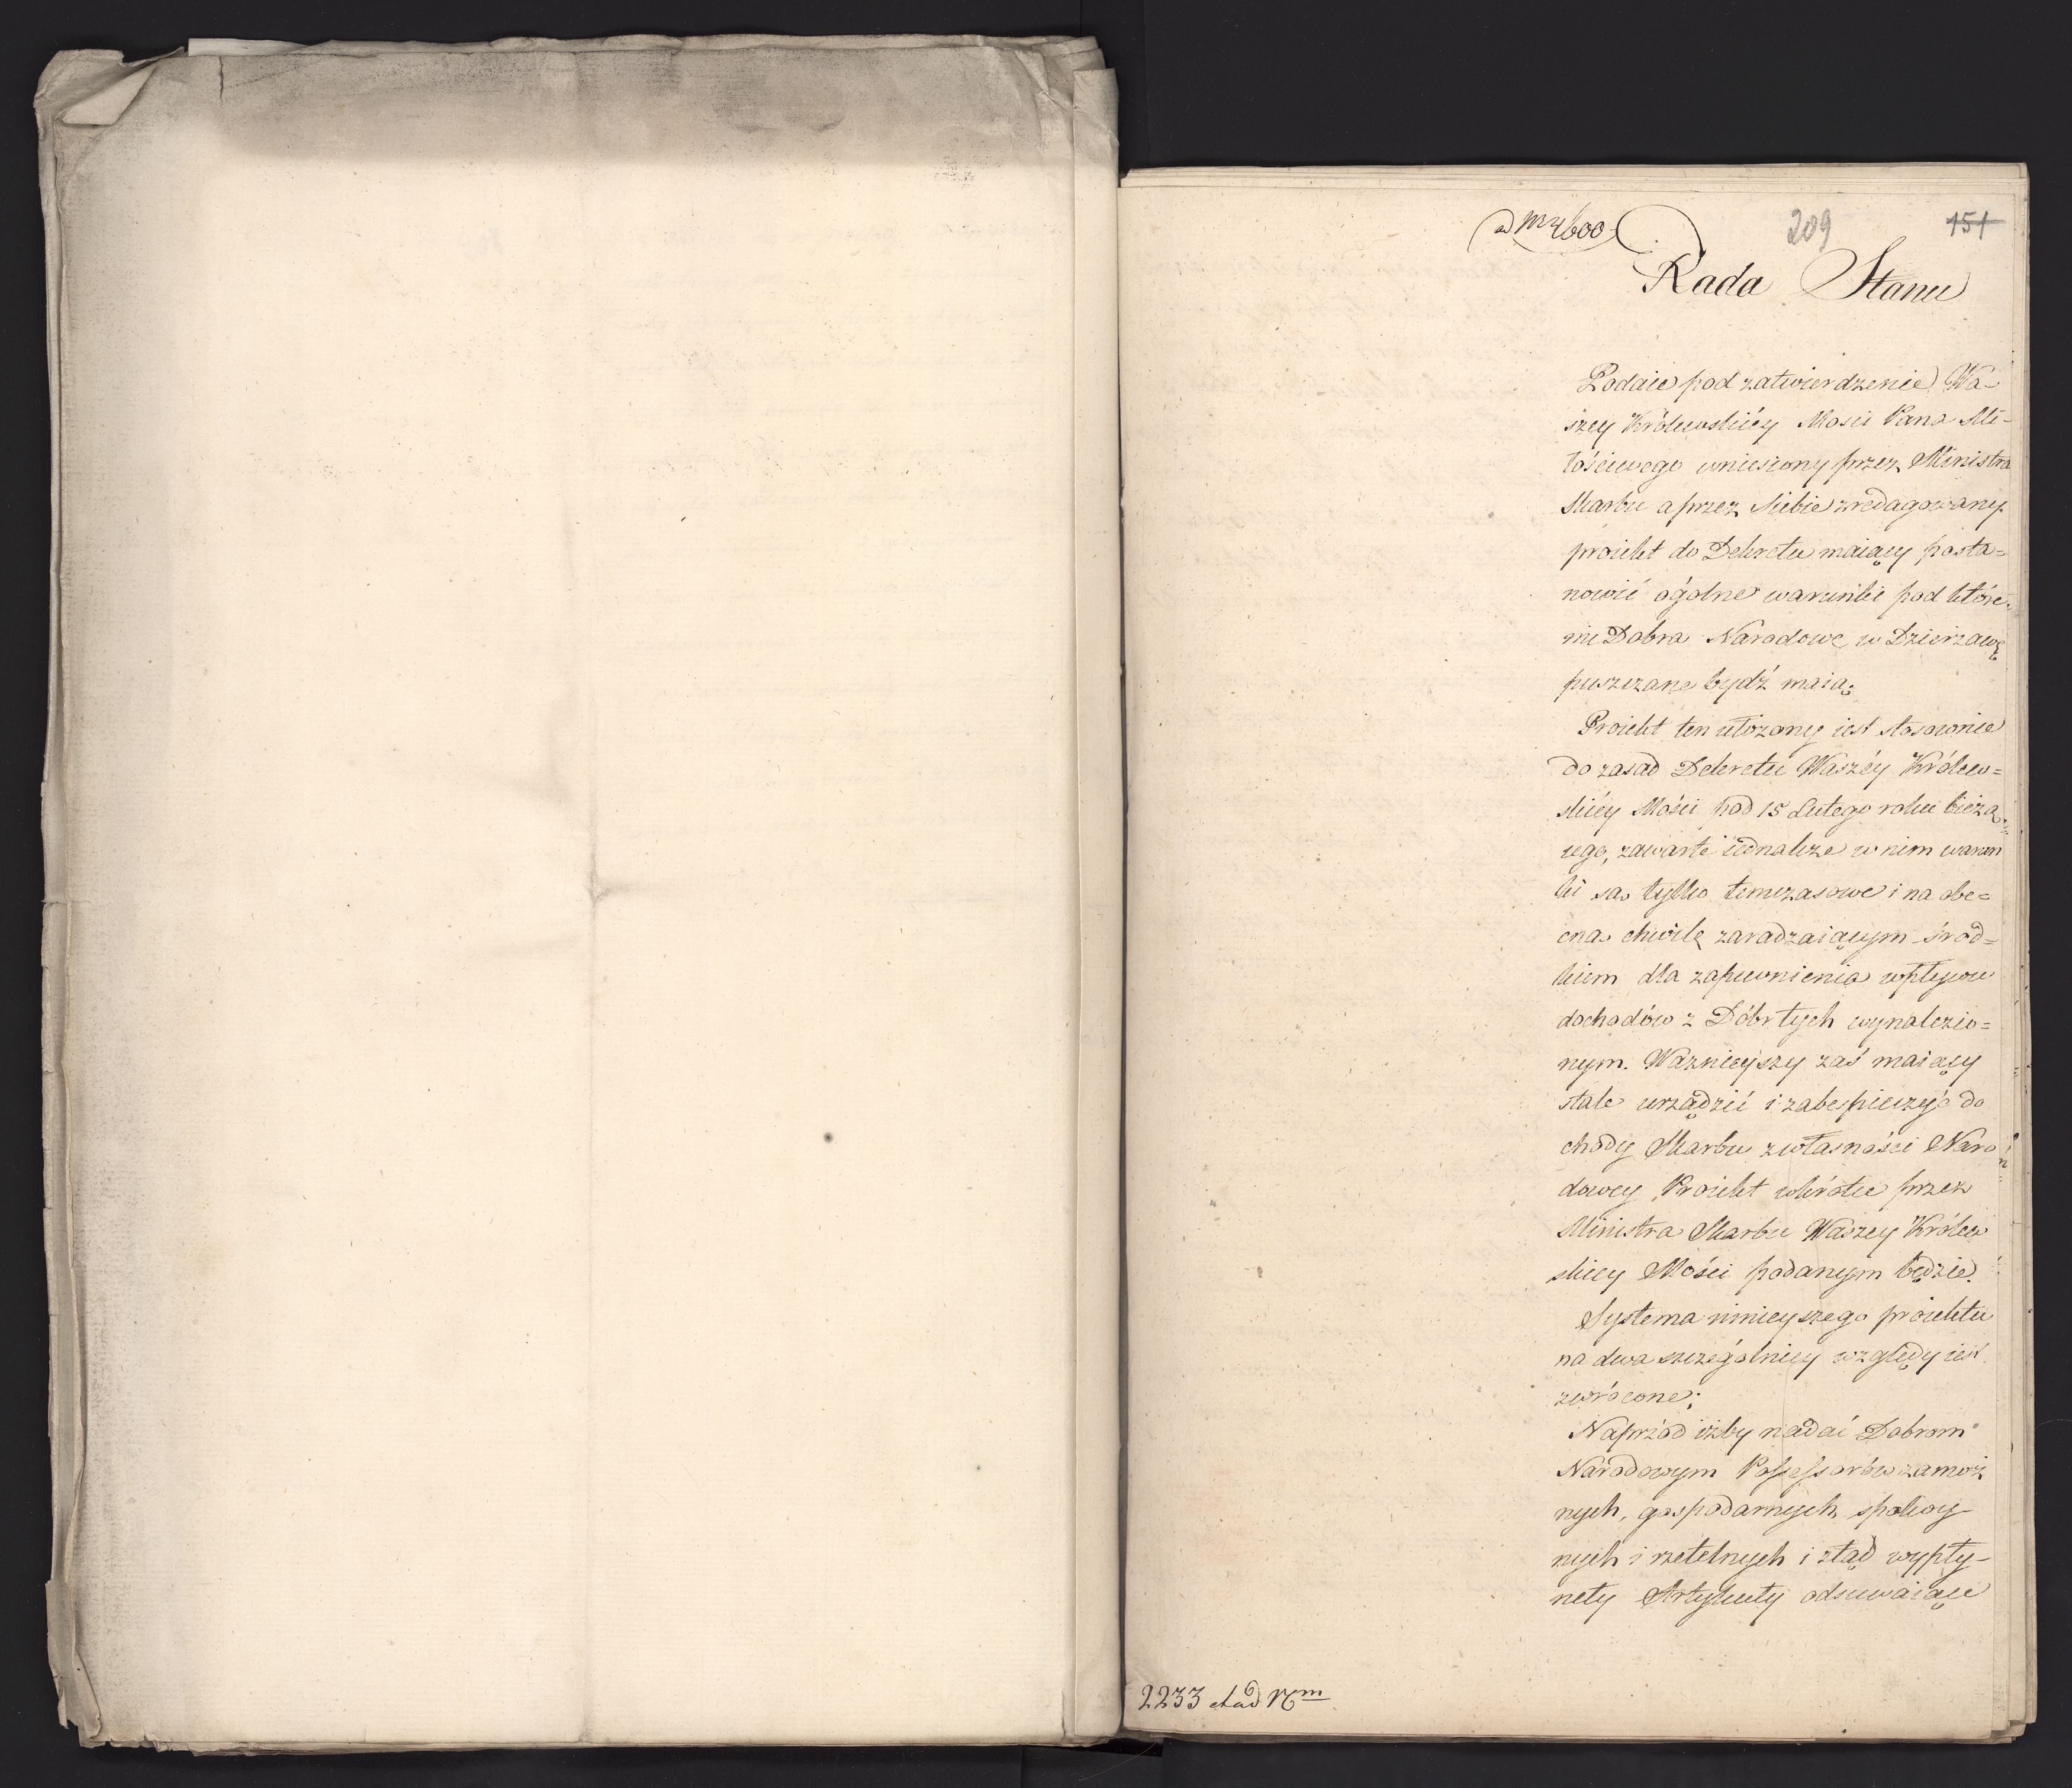 ad Nr 4600
209
151
Rada Stanu
Podaie pod zatwierdzenie Wa-
szey Królewskiéy Mosci Pana Mi-
łościwego wniesiony przez Ministra
Skarbu a przez Siebie zredagowany
proiekt do Dekretu maiący posta=
nowić ogólne warunki pod któré-
mi Dobra Narodowe w Dzierżawę
puszczane bydź maią.
Proiekt ten ułożony iest stosownie
do zasad Dekretu Waszéy Królew=
skiéy Mości pod 15 Lutego roku bieżą=
cego, zawarte iednakże w nim warun
ki są tylko temczasowe i na obe=
cną chwilę zaradzaiącym środ=
kiem dla zapewnienia wpływu
dochodów z Dóbr tych wynalezio=
nym. Ważnieyszy zaś maiący
stale urządzić i zabespieczyć do
chody Skarbu z własności Naro
dowey Proiekt wkrótce przez
Ministra Skarbu Waszey Królew
skiey Mości podanym będzie.
Systema ninieyszego proiektu
na dwa szczególniey względy iest
zwrócone;
Naprzód iżby nadać Dobrom
Narodowym Possessorów zamoż
nych, gospodarnych, spokoy-
nych i rzetelnych i ztąd wypły-
neły Artykuły odsuwaiące
2233